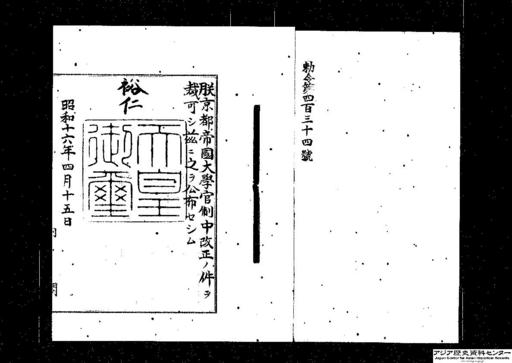 勅令第四百三十四號
朕京都帝國大學官制中改正ノ件ヲ
裁可シ茲ニ之ヲ公布セシム
裕仁
天皇
御璽
昭和十六年四月十五日
内閣
アジア歴史資料センター
Japan Center for Asian Historical Records